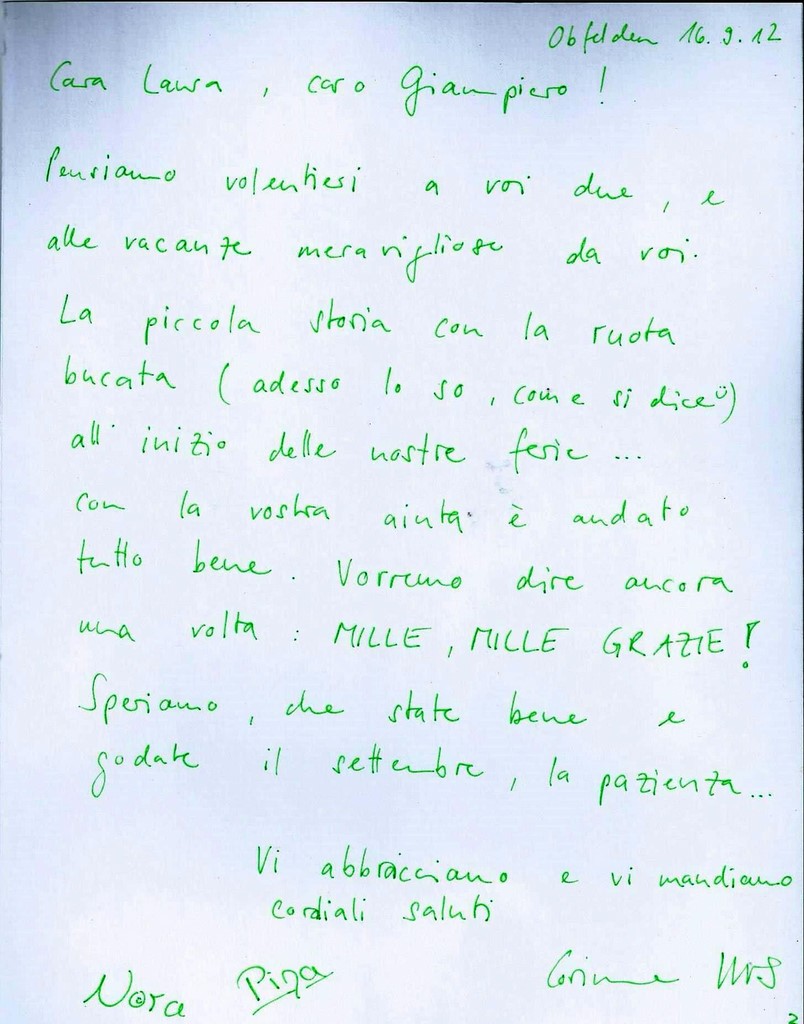 Obfelden 16.9.12
Cara Laura, caro Giampiero!
Pensiamo volentieri a voi due, e
alle vacanze meravigliose da voi.
La piccola storia con la ruota
bucata (adesso lo so, come si dice ü)
all' inizio delle nostre ferie ...
con la vostra aiuta è andato
tutto bene. Vorremo dire ancora
una volta: MILLE, MILLE GRAZIE!
Speriamo, che state bene e
godate il settembre, la pazienza...
Vi abbracciamo e vi mandiamo
cordiali saluti
Nora Pina Corinne Urs
2